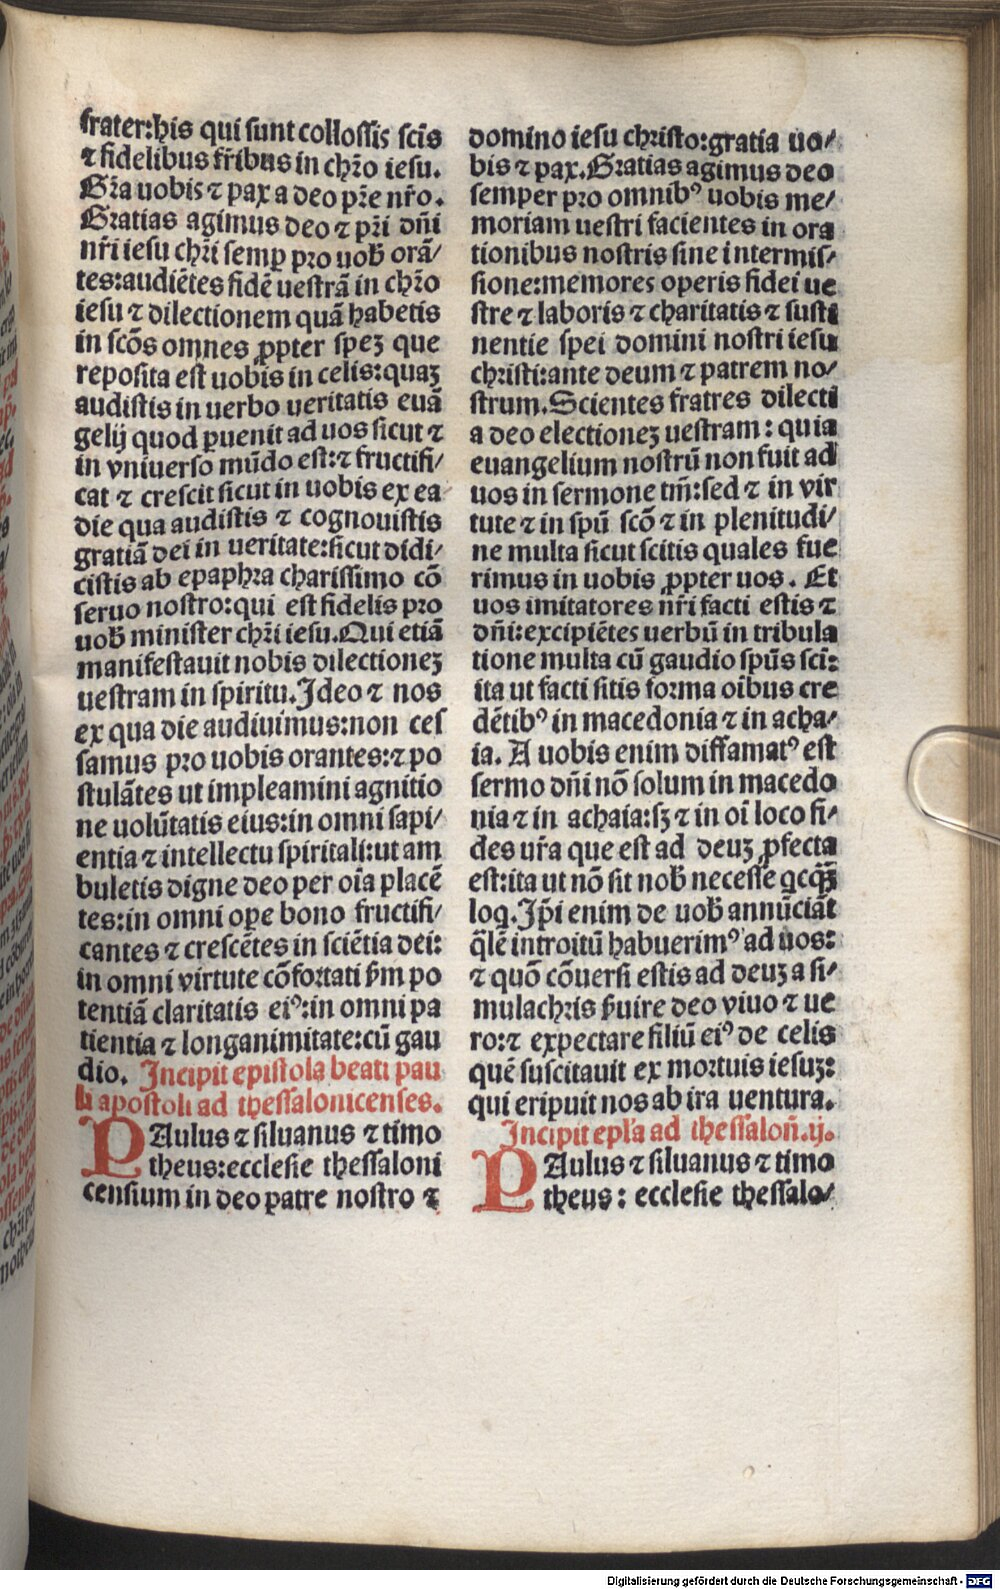 frater:his qui sunt collossis scis
⁊ fidelibus fr̄ibus in chr̄o iesu.
Gr̄a uobis ⁊ pax a deo pr̄e nr̄o.
Gratias agimus deo ⁊ pr̄i dn̄i
nr̄i iesu chr̄i semꝑ pro uob̄ orā/
tes:audiētes fidē uestrā in chr̄o
iesu ⁊ dilectionem quā habetis
in scōs omnes ꝓpter speʒ que
reposita est uobis in celis:quaʒ
audistis in uerbo ueritatis euā
gelij quod ꝑuenit ad uos sicut ⁊
in vniuerso mūdo est:⁊ fructifi/
cat ⁊ crescit sicut in uobis ex ea
die qua audistis ⁊ cognouistis
gratiā dei in ueritate:sicut didi/
cistis ab epaphra charissimo cō
seruo nostro:qui est fidelis pro
uob̄ minister chr̄i iesu.Qui etiā
manifestauit nobis dilectioneʒ
uestram in spiritu.Ideo ⁊ nos
ex qua die audiuimus:non ces
samus pro uobis orantes:⁊ po
stulātes ut impleamini agnitio
ne uolūtatis eius:in omni sapi/
entia ⁊ intellectu spiritali:ut am
buletis digne deo per oīa placē
tes:in omni oꝑe bono fructifi/
cantes ⁊ crescētes in sciētia dei:
in omni virtute cōfortati ẜm po
tentiā claritatis eiꝰ:in omni pa
tientia ⁊ longanimitate:cū gau
dio. Incipit epistola beati pau
li apostoli ad thessalonicenses.
PAulus ⁊ siluanus ⁊ timo
theus:ecclesie thessaloni
censium in deo patre nostro ⁊
domino iesu christo:gratia uo/
bis ⁊ pax.Gratias agimus deo
semper pro omnibꝰ uobis me/
moriam uestri facientes in ora
tionibus nostris sine intermis/
sione:memores operis fidei ue
stre ⁊ laboris ⁊ charitatis ⁊ susti
nentie spei domini nostri iesu
christi:ante deum ⁊ patrem no/
strum.Scientes fratres dilecti
a deo electioneʒ uestram: quia
euangelium nostrū non fuit ad
uos in sermone tm̄:sed ⁊ in vir
tute ⁊ in spū scō ⁊ in plenitudi/
ne multa sicut scitis quales fue
rimus in uobis ꝓpter uos. Et
uos imitatores nr̄i facti estis ⁊
dn̄i:excipiētes uerbū in tribula
tione multa cū gaudio spūs sci:
ita ut facti sitis forma oībus cre
dētibꝰ in macedonia ⁊ in acha/
ia. A uobis enim diffamatꝰ est
sermo dn̄i nō solum in macedo
nia ⁊ in achaia:sʒ ⁊ in oī loco fi/
des ur̄a que est ad deuʒ ꝓfecta
est:ita ut nō sit nob̄ necesse qcq̄ʒ
loq.Ip̄i enim de uob̄ annūciāt
q̄lē introitū habuerimꝰ ad uos:
⁊ quō cōuersi estis ad deuʒ a si/
mulachris ẜuire deo viuo ⁊ ue
ro:⁊ expectare filiū eiꝰ de celis
quē suscitauit ex mortuis iesuʒ:
qui eripuit nos ab ira uentura.
Incipit ep̄la ad thessalon̄.ij.
PAulus ⁊ siluanus ⁊ timo
theus: ecclesie thessalo/
Digitalisierung gefördert durch die Deutsche Forschungsgemeinschaft - DFG